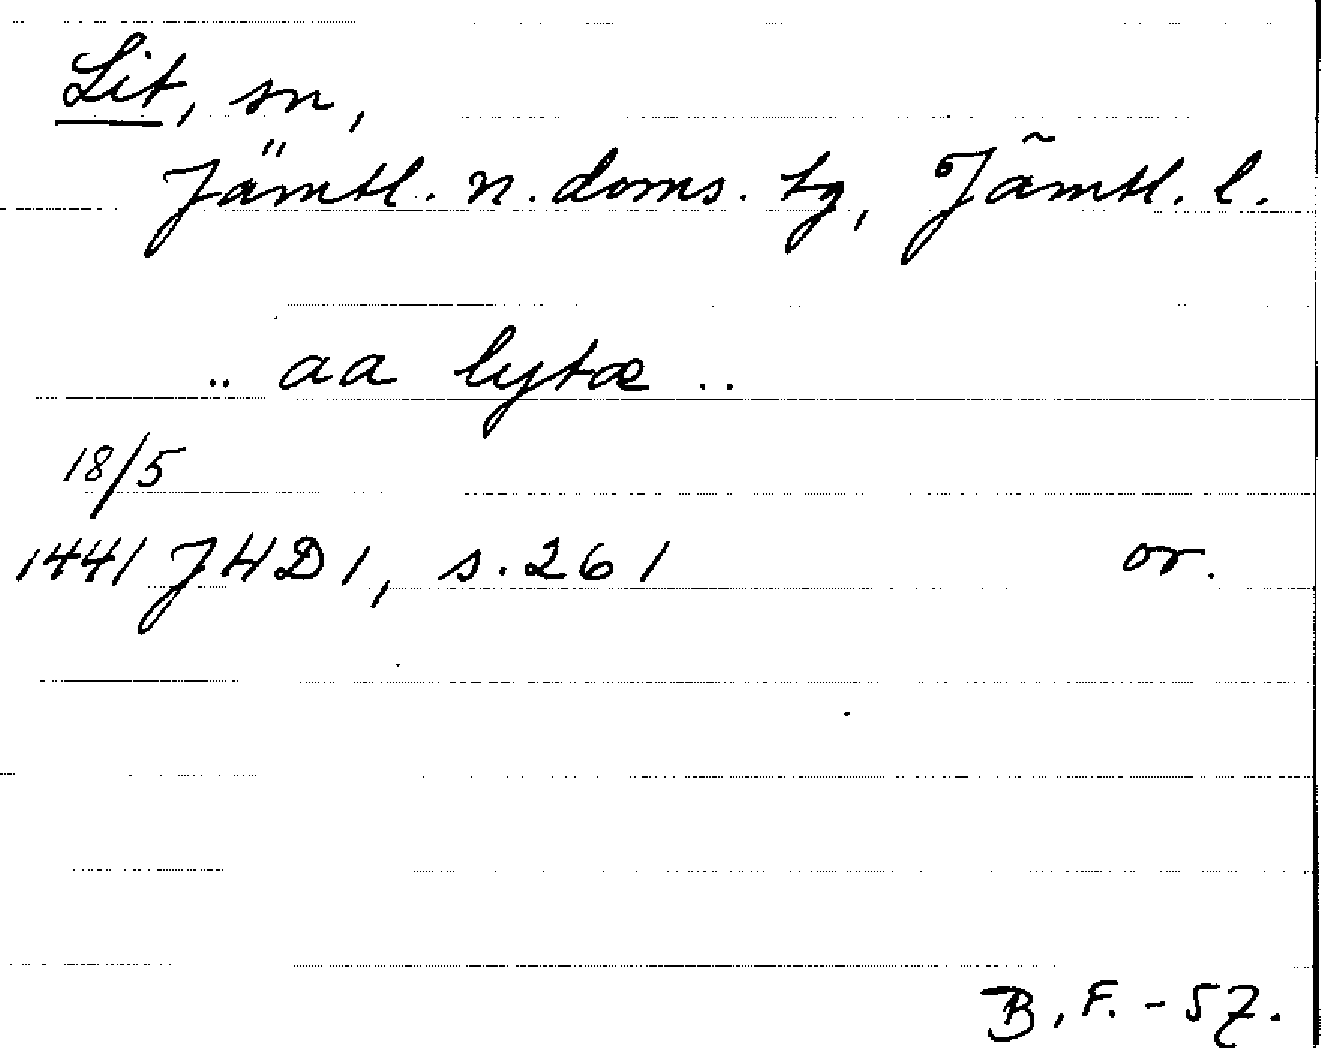 Lit, sn,
Jämtl. n. doms. tg, Jämtl. l.
.. aa lytæ ..
18/5
1441 JHD 1, s. 261 or.
B. F. - 57.